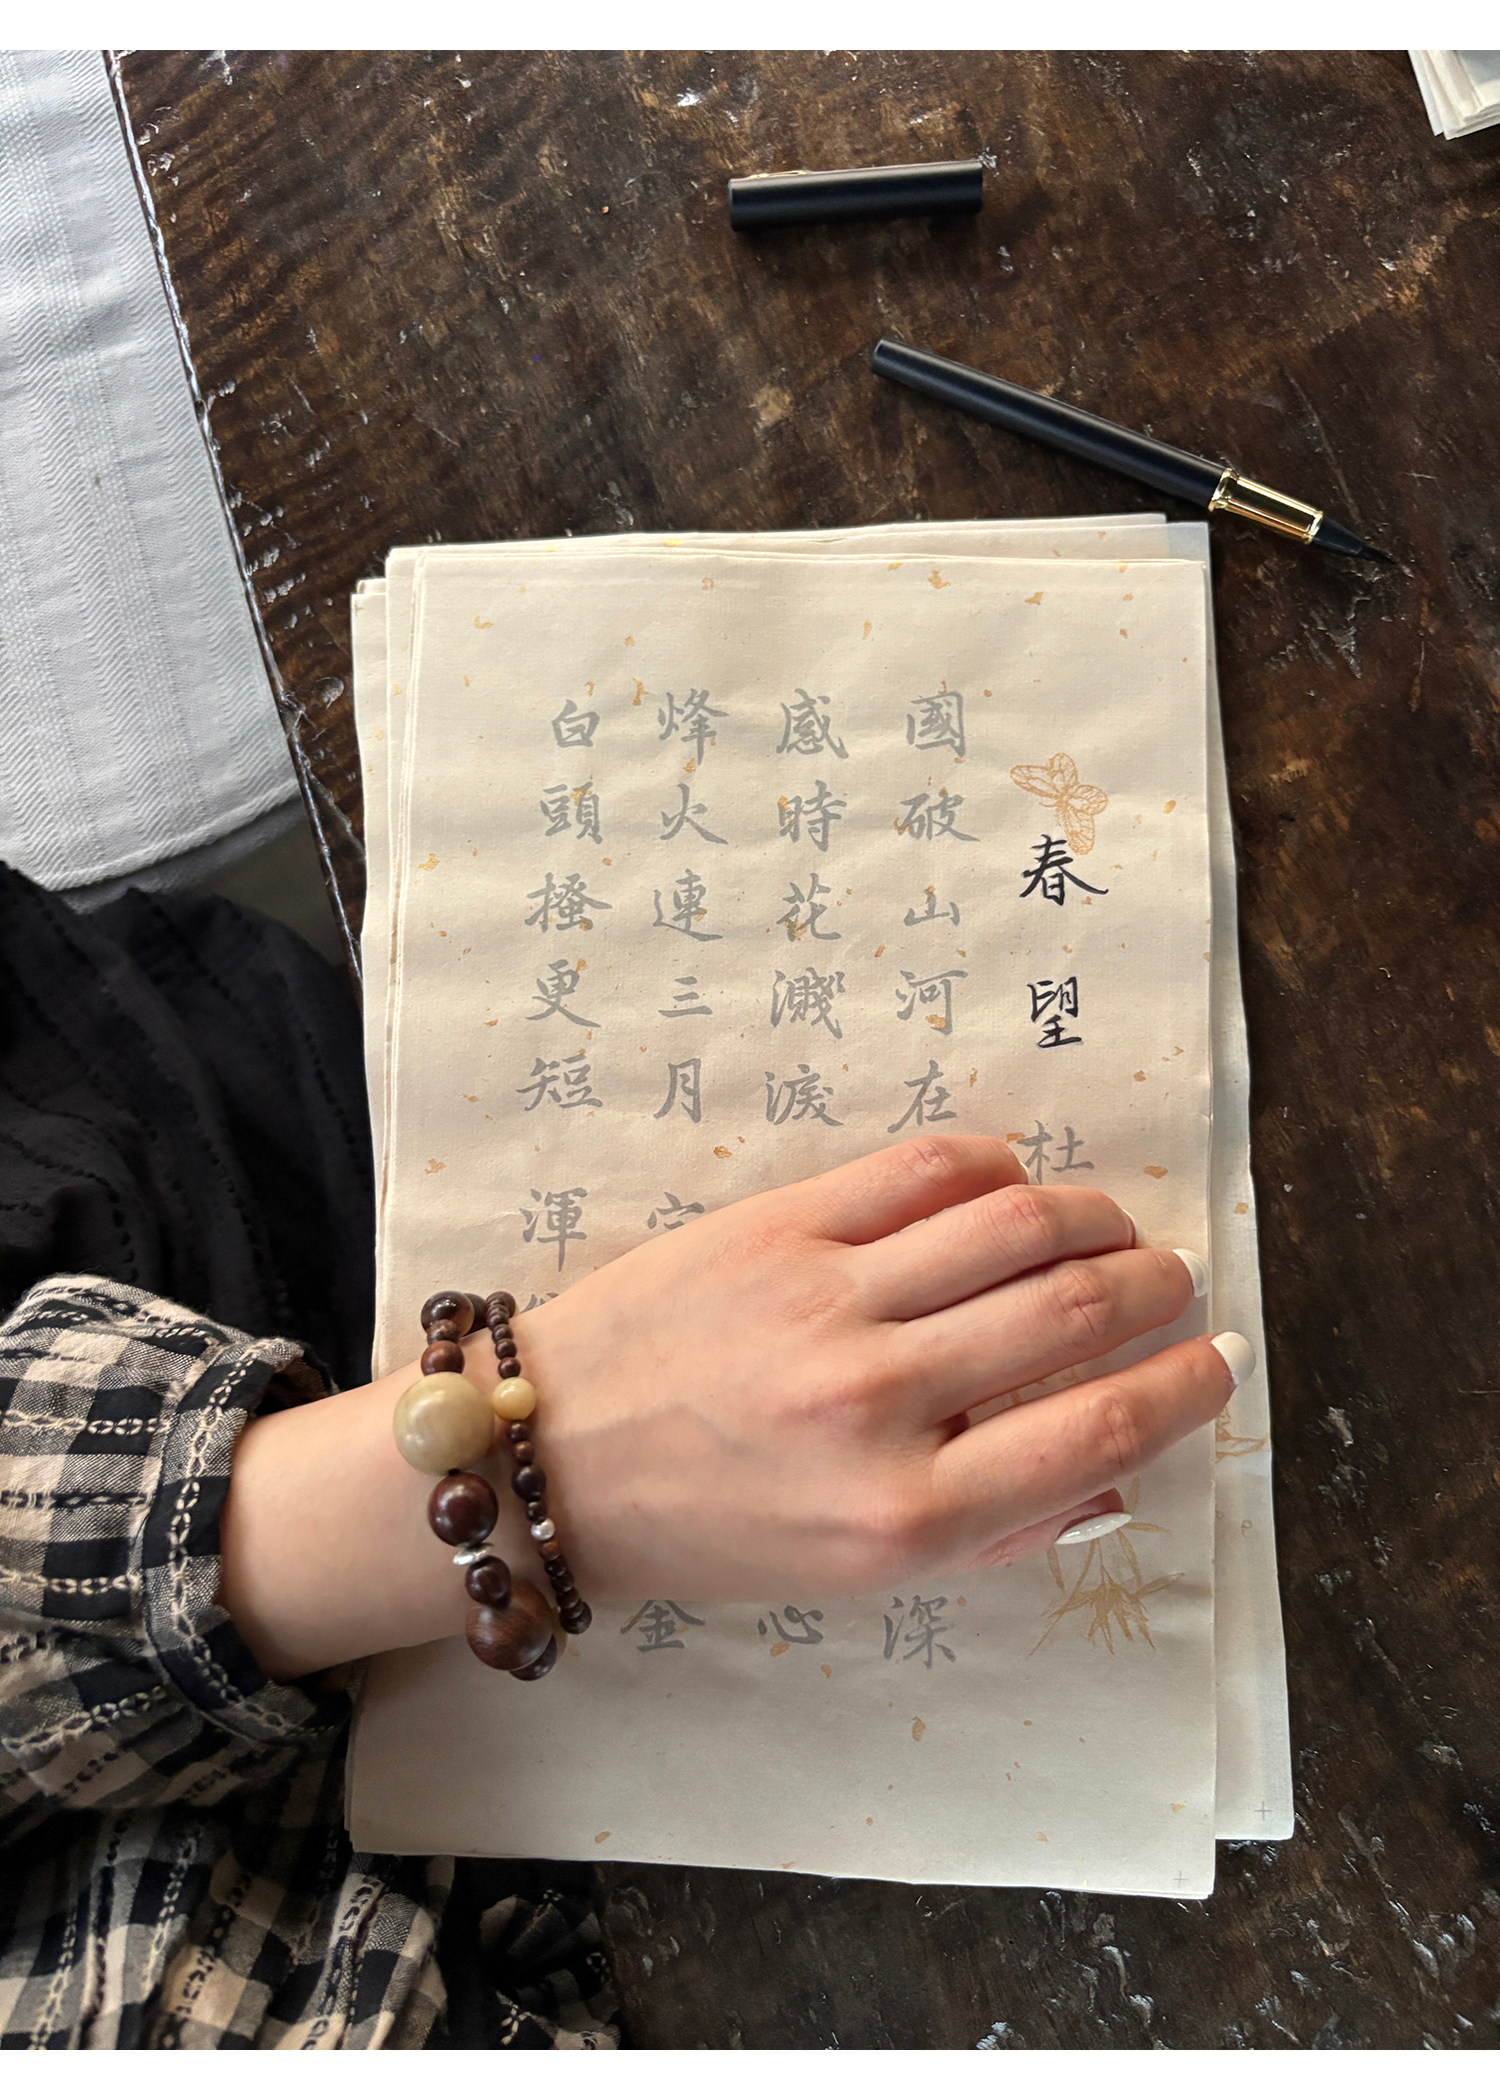 春望 杜
國破山河在 深
感時花濺淚 心
烽火連三月 金
白頭搔更短 渾